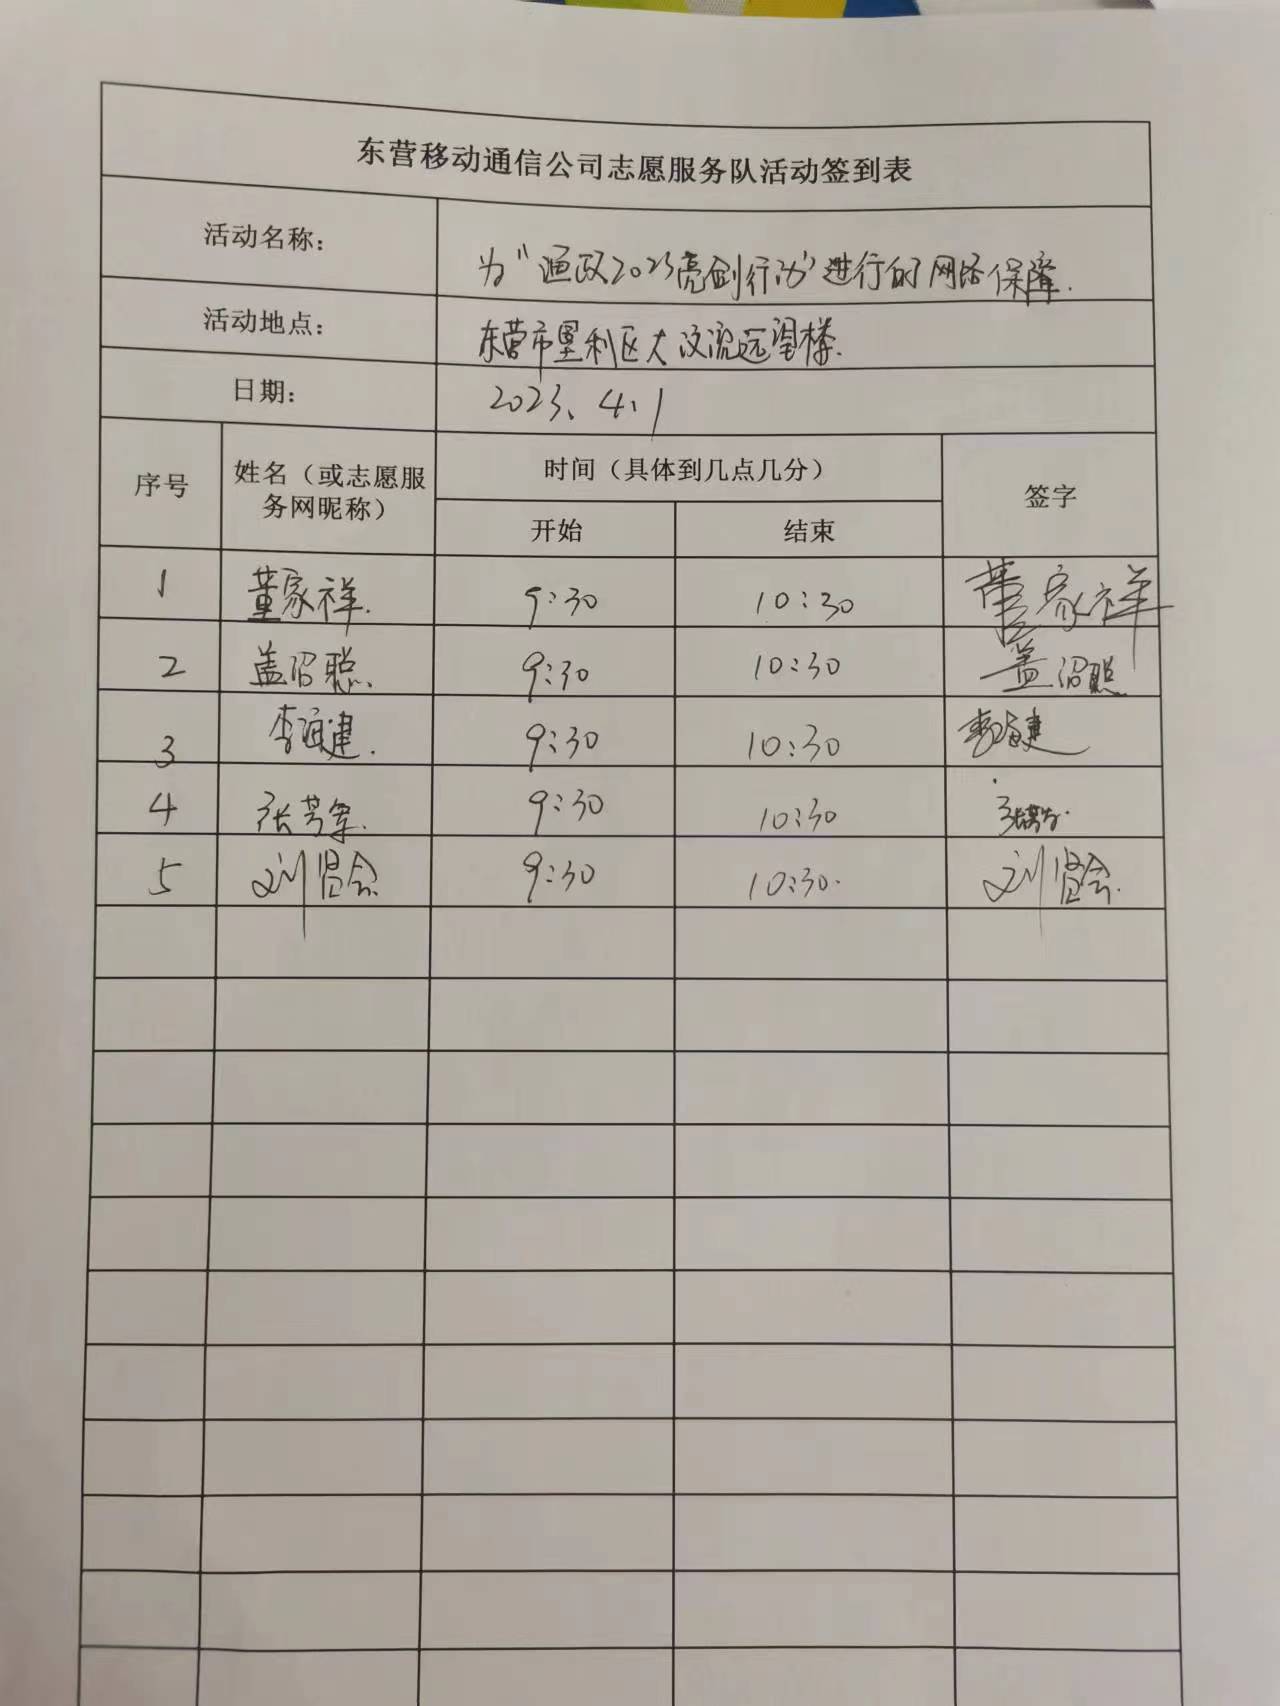 东营移动通信公司志愿服务队活动签到表
活动名称：
为“渔政2023亮剑行动”进行的网络保障.
活动地点：
东营市垦利区大汶流远望楼.
日期：
2023、4、1
序号
姓名（或志愿服
务网昵称）
时间（具体到几点几分）
开始
结束
签字
1 董家祥. 9:30 10:30 董家祥
2 盖沼聪、 9:30 10:30 盖沼聪
3 李海建. 9:30 10:30 李海建
4 张芳 9:30 10:30 张芳
5 刘贤会 9:30 10:30. 刘贤会.